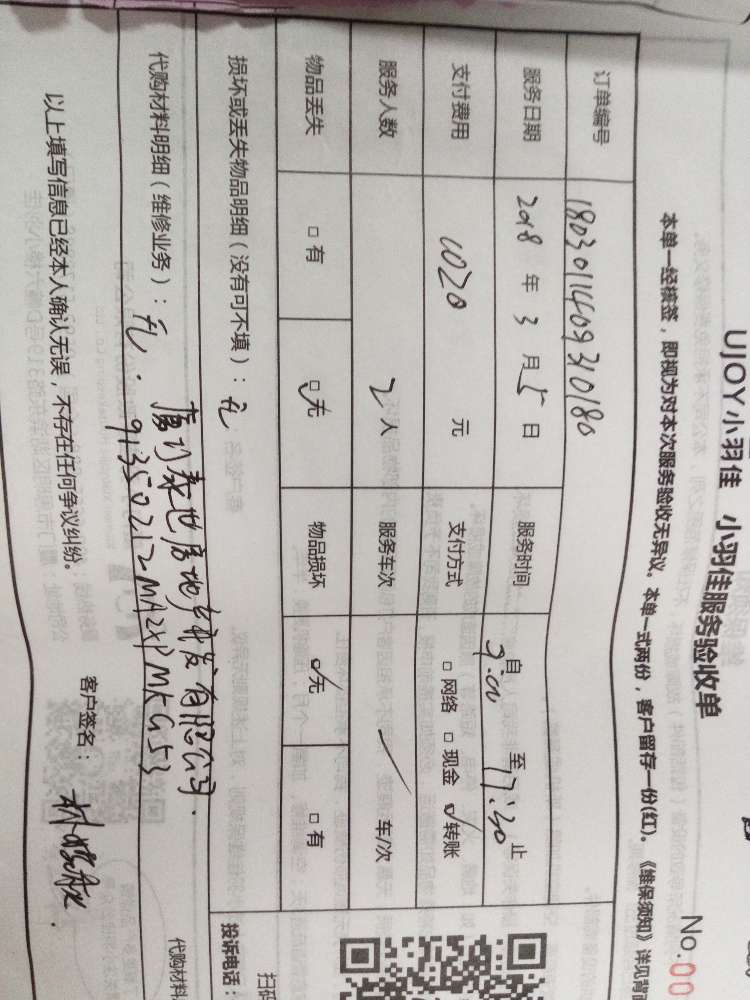 UJOY小羽佳 小羽佳服务验收单
No.00
本单一经核签，即视为对本次服务验收无异议。本单一式两份，客户留存一份(红)。《维保须知》详见背面
订单编号 1803011409310180
服务日期 2018 年 3 月 5 日 服务时间 自 9:00 至 17:30 止
支付费用 1020 元 支付方式 □ 网络 □ 现金 ☑ 转账
服务人数 2 人 服务车次 / 车/次
物品丢失 □ 有 ☑ 无 物品损坏 ☑ 无 □ 有
损坏或丢失物品明细（没有可不填）： 无
扫码
投诉电话：
代购材料明细（维修业务）： 无. 厦门泰地房地产开发有限公司.
91350212MA2XPMKG53
代购材料
以上填写信息已经本人确认无误，不存在任何争议纠纷。 客户签名：